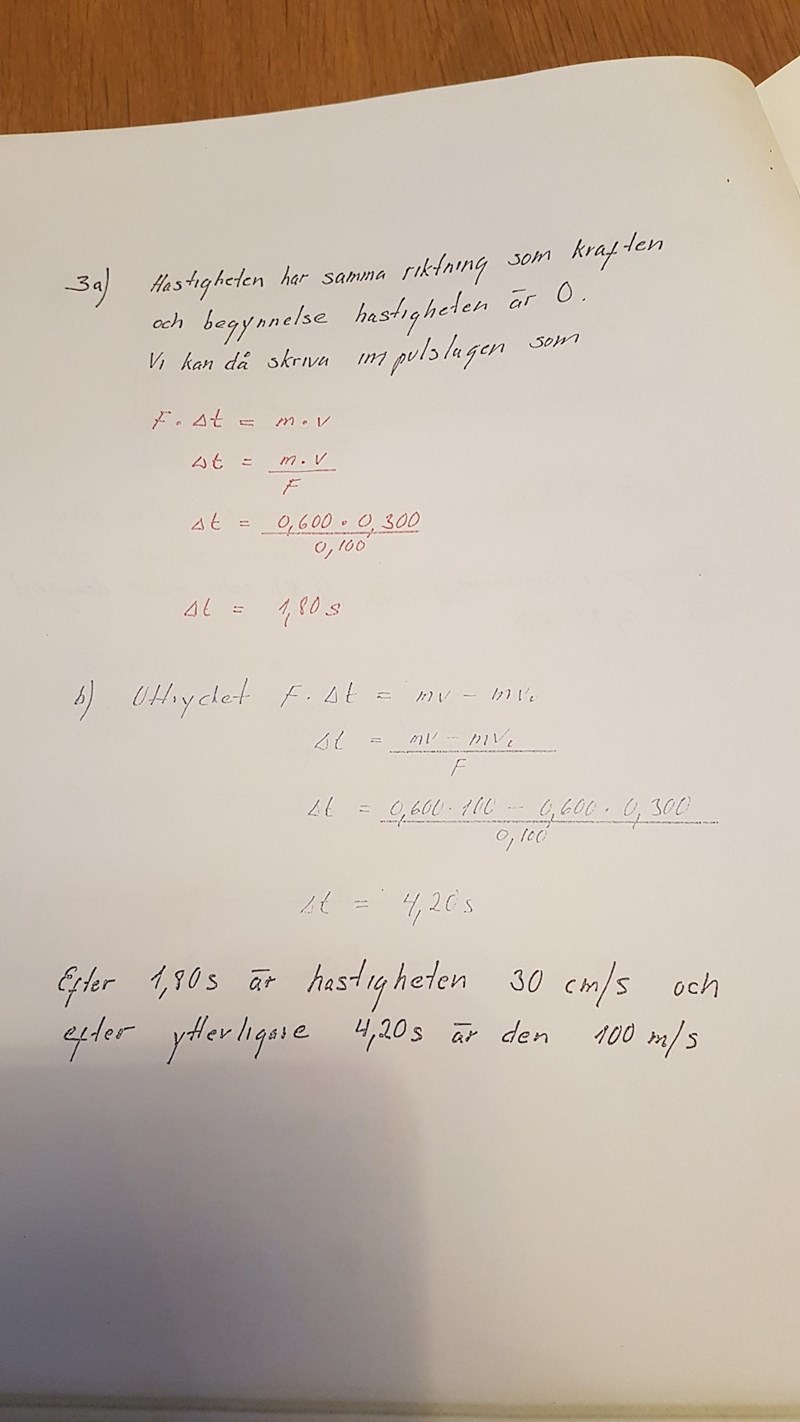 3a) Hastigheten har samma riktning som kraften
och begynnelse hastigheten är 0.
Vi kan då skriva impulslagen som
F · Δt = m · v
Δt = m · v / F
Δt = 0,600 · 0,300 / 0,100
Δt = 1,80 s
b) Uttrycket F · Δt = mv - mv₀
Δt = mv - mv₀ / F
Δt = 0,600 · 100 - 0,600 · 0,300 / 0,100
Δt = 4,20 s
Efter 1,80 s är hastigheten 30 cm/s och
efter ytterligare 4,20 s är den 100 m/s